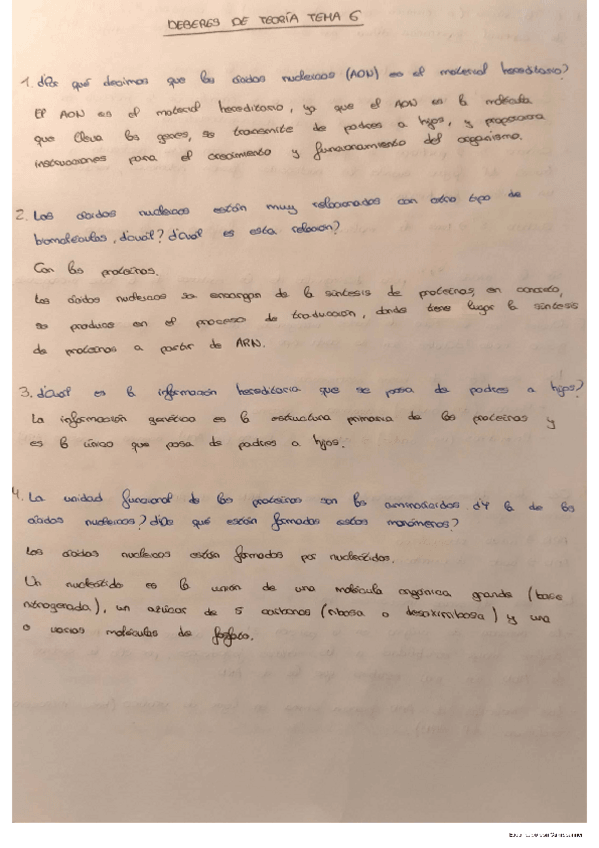 DEBERES DE TEORÍA TEMA 6
1. ¿Por qué decimos que los ácidos nucleicos (ADN) es el material hereditario?
El ADN es el material hereditario, ya que el ADN es la molécula
que lleva los genes, se transmite de padres a hijos, y proporciona
instrucciones para el crecimiento y funcionamiento del organismo.
2. Los ácidos nucleicos están muy relacionados con otro tipo de
biomoléculas, ¿cuál? ¿Cuál es esta relación?
Con las proteínas.
Los ácidos nucleicos se encargan de la síntesis de proteínas, en concreto,
se produce en el proceso de traducción, donde tiene lugar la síntesis
de proteínas a partir de ARN.
3. ¿Cuál es la información hereditaria que se pasa de padres a hijos?
La información genética es la estructura primaria de las proteínas y
es lo único que pasa de padres a hijos.
4. La unidad funcional de las proteínas son los aminoácidos ¿Y la de los
ácidos nucleicos? ¿Por qué están formados estos monómeros?
Los ácidos nucleicos están formados por nucleótidos.
Un nucleótido es la unión de una molécula orgánica grande (base
nitrogenada), un azúcar de 5 carbonos (ribosa o desoxirribosa) y una
o varias moléculas de fosfato.